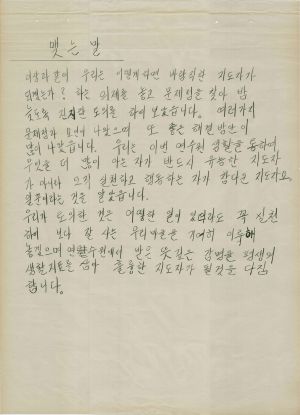 맺는말
이상과 같이 우리는 어떻게하면 바람직한 지도자가
되겠는가? 하는 의제를 놓고 문제점을 찾아 밤
늦도록 진지한 토의를 하여 보았습니다. 여러가지
문제점과 요인이 나왔으며 또 좋은 해결방안이
많이 나왔습니다. 우리는 이번 연수원 생활을 통하여
무엇을 더 많이 아는 자가 반드시 유능한 지도자
가 아니라 오직 실천하고 행동하는 자가 참다운 지도자요,
일꾼이라는 것을 알았습니다.
우리가 토의한 것은 어떠한 일이 있더라도 꼭 실천
하여 보다 잘 사는 우리마을을 기어히 이룩해
놓겠으며 연수원에서 받은 뜻깊은 감명을 평생의
생활지표로 삼아 훌륭한 지도자가 될것을 다짐
합니다.